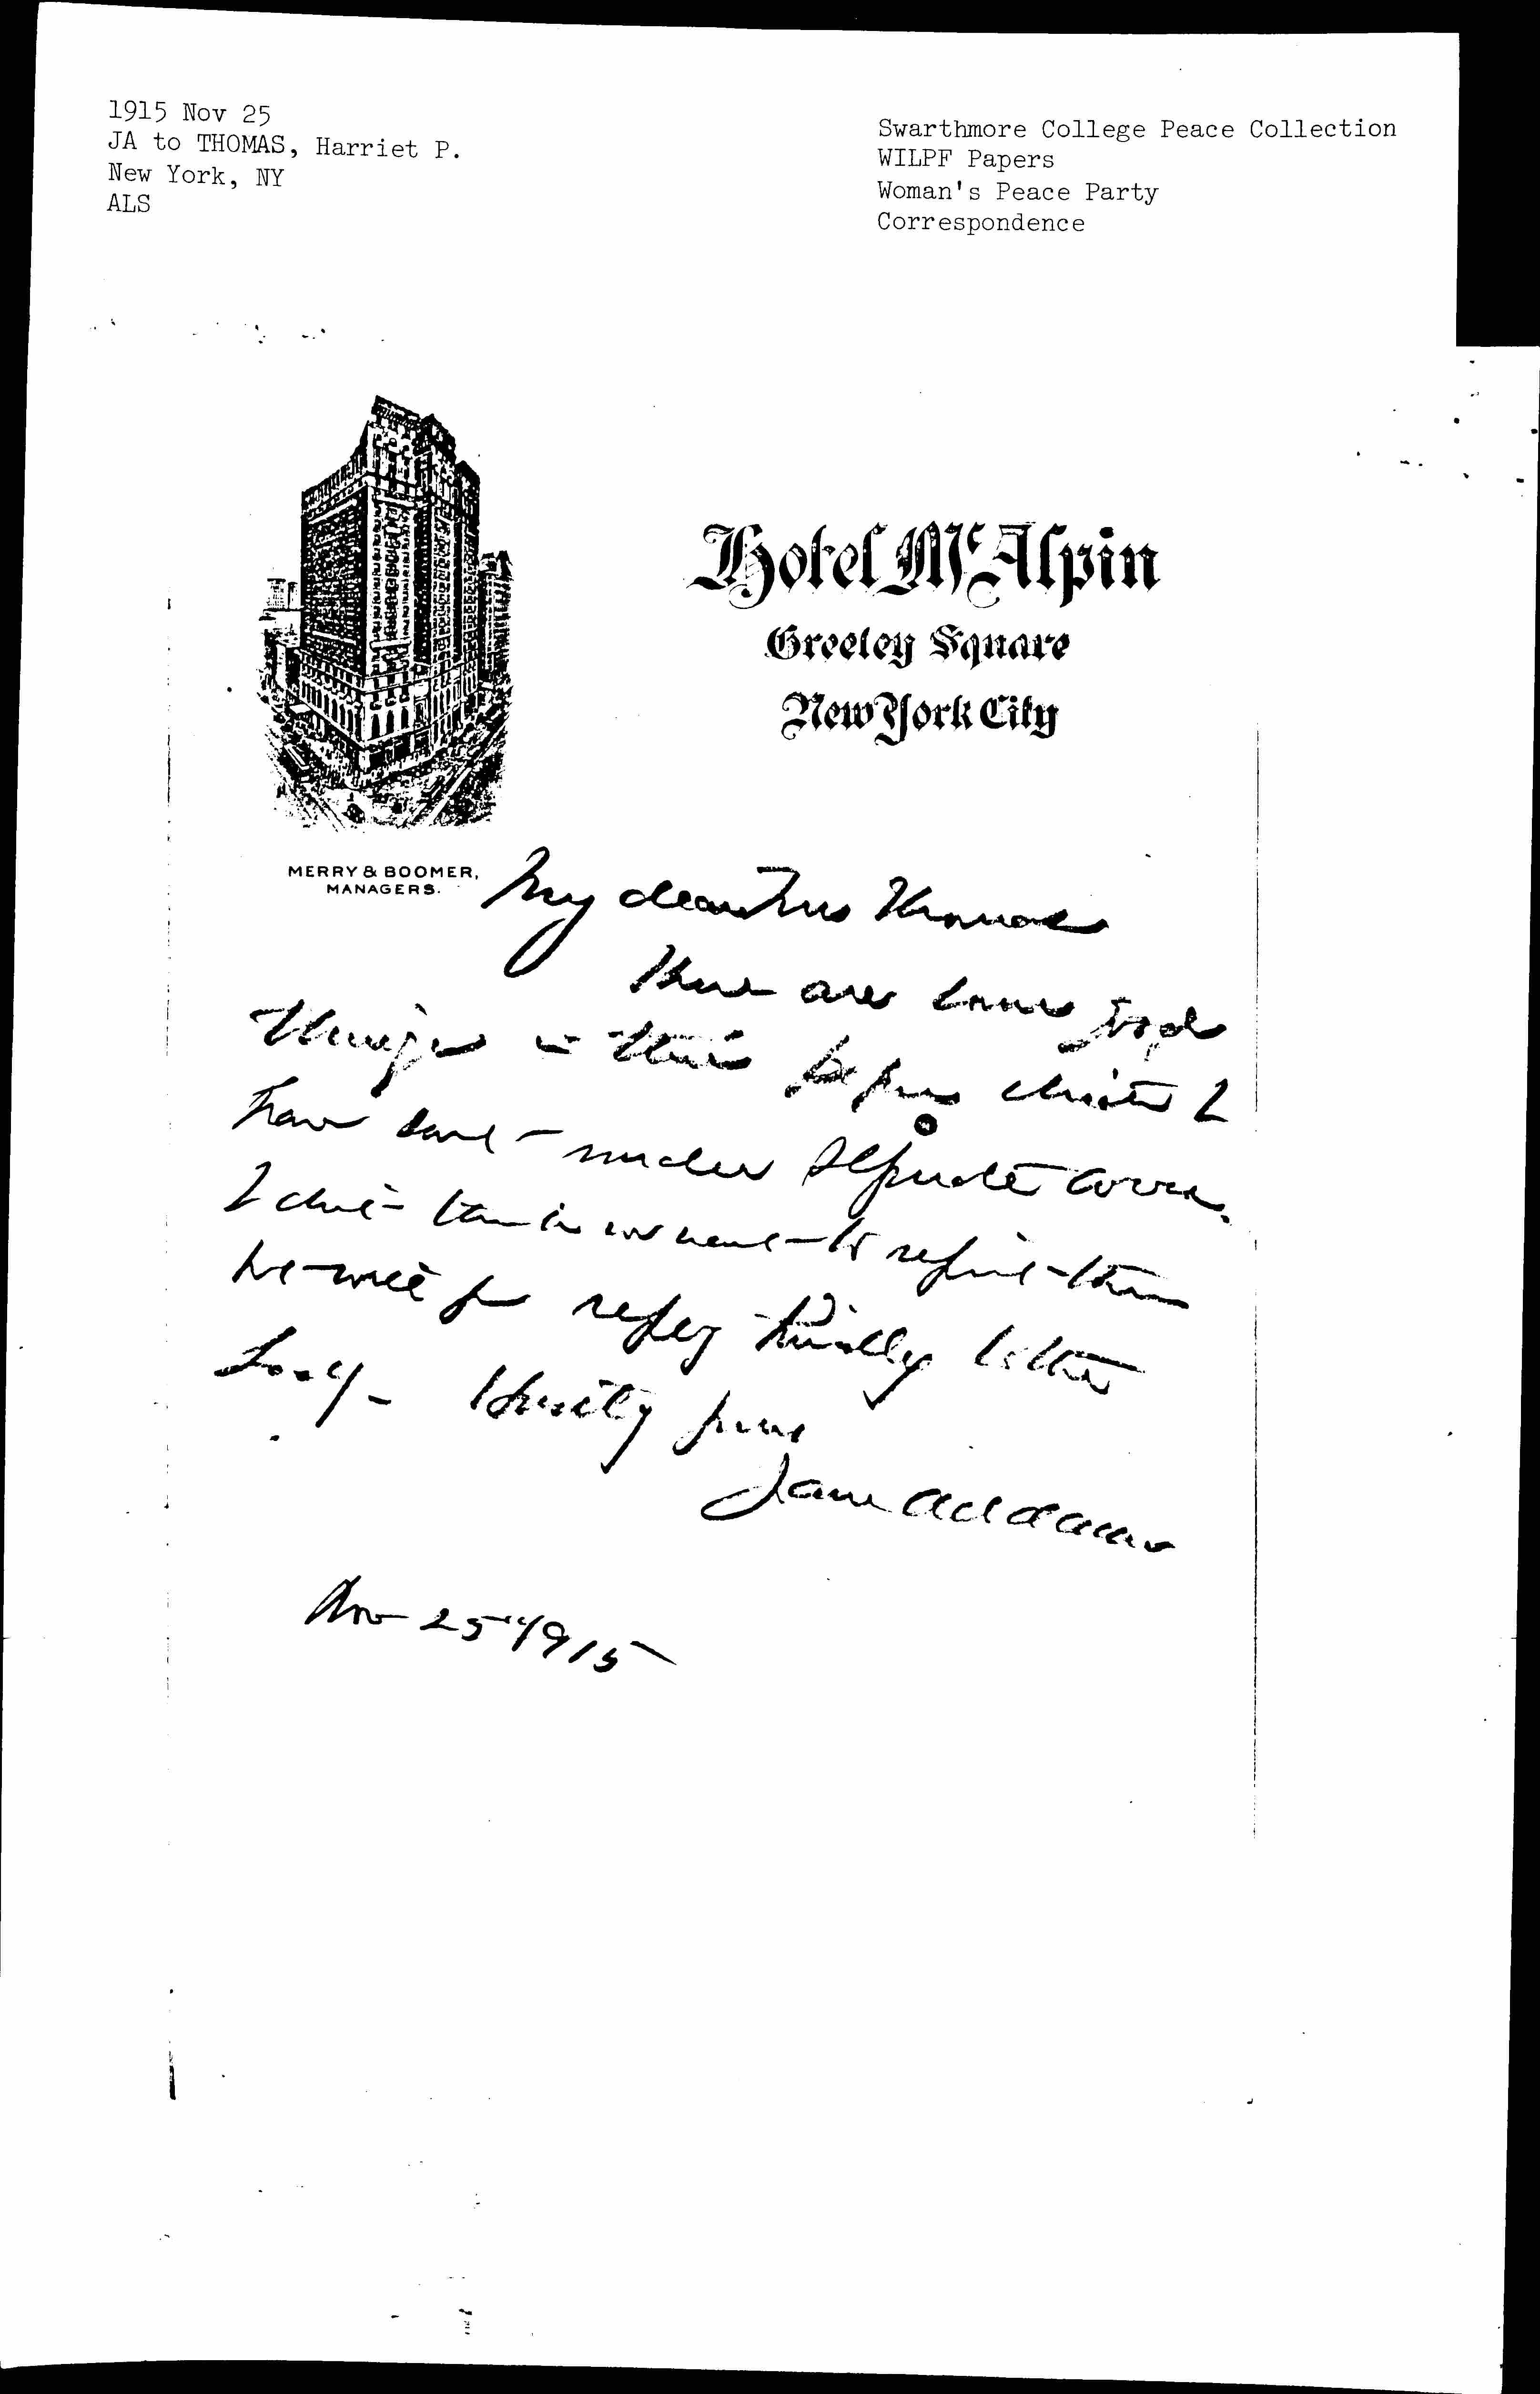 1915 Nov 25
JA to THOMAS, Harriet P.
New York, NY
ALS
Swarthmore College Peace Collection
WILPF Papers
Woman's Peace Party
Correspondence
Hotel McAlpin
Greeley Square
New York City
MERRY & BOOMER,
MANAGERS.
My dear Mrs Thomas
There are some good
things in these papers which I
have sent under separate cover.
I don't think we want to reprint them
we will for reply kindly to the
Hastily yours
Jane Addams
Nov 25" 1915